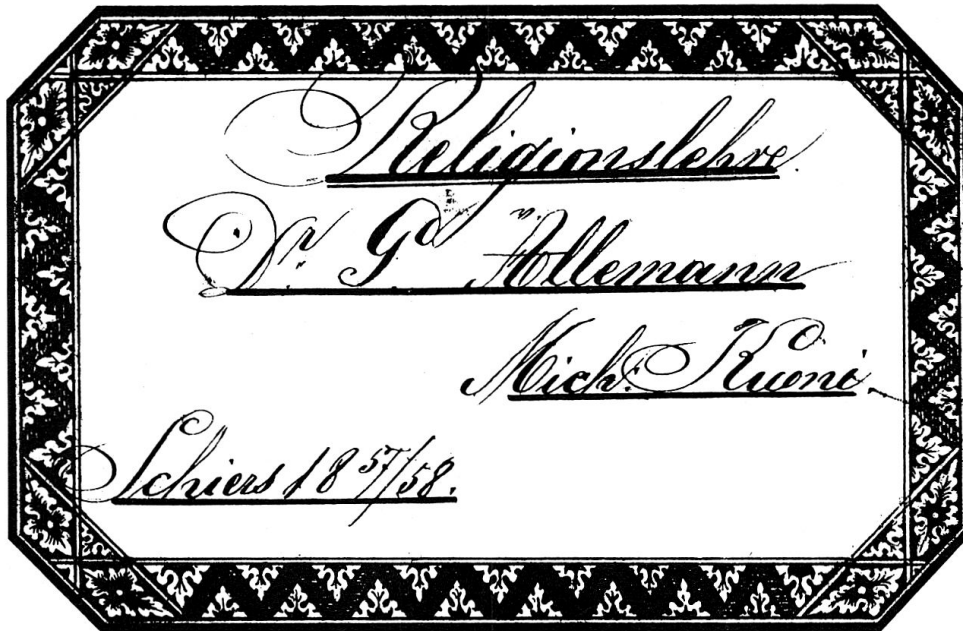 Religionslehre.
Dr. G. v. Allemann
Mich. Kuoni.
Schiers 18 57/58.